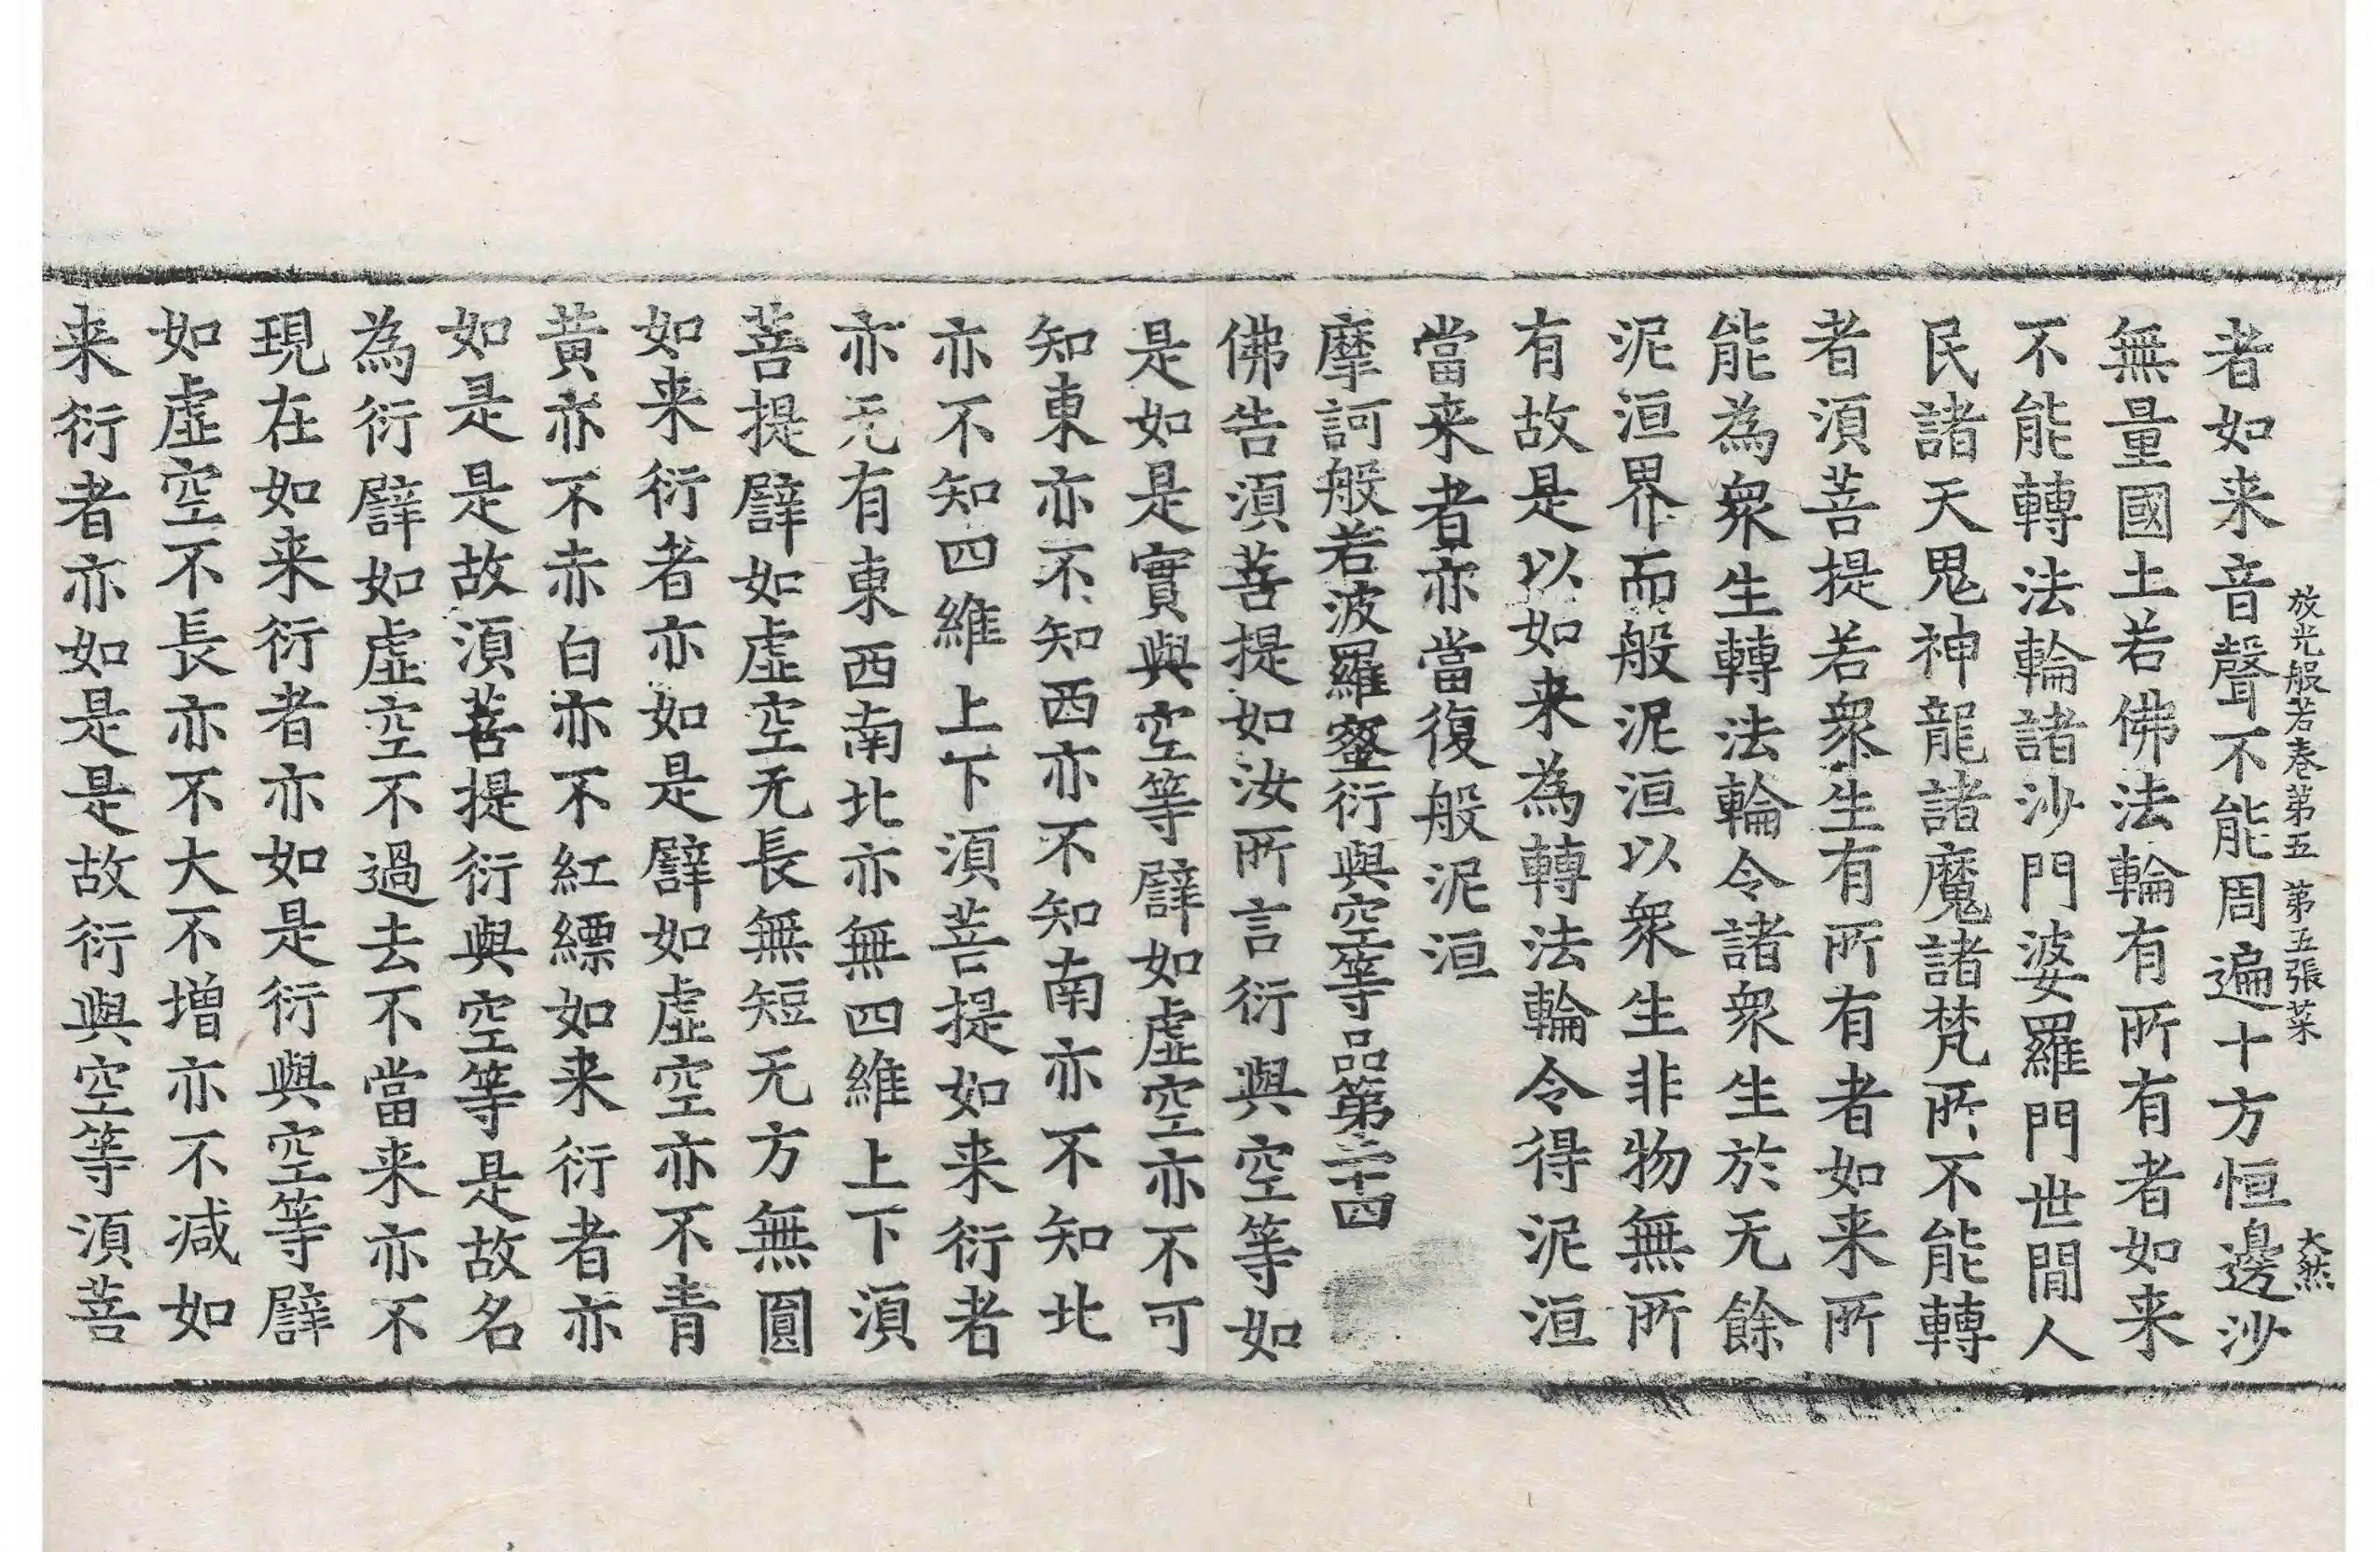 放光般若卷第五 第五張 菜 大然
者如来音聲不能周遍十方恒邊沙
無量國土若佛法輪有所有者如来
不能轉法輪諸沙門婆羅門世間人
民諸天鬼神龍諸魔諸梵所不能轉
者湏菩提若衆生有所有者如来所
能為衆生轉法輪令諸衆生於无餘
泥洹界而般泥洹以衆生非物無所
有故是以如来為轉法輪令得泥洹
當来者亦當復般泥洹
摩訶般若波羅蜜衍與空等品第二十四
佛告湏菩提如汝所言衍與空等如
是如是實與空等譬如虛空亦不可
知東亦不知西亦不知南亦不知北
亦不知四維上下湏菩提如来衍者
亦无有東西南北亦無四維上下湏
菩提譬如虛空无長無短无方無圓
如来衍者亦如是譬如虛空亦不青
黄亦不赤白亦不紅縹如来衍者亦
如是是故湏菩提衍與空等是故名
為衍譬如虛空不過去不當来亦不
現在如来衍者亦如是衍與空等譬
如虛空不長亦不大不増亦不减如
来衍者亦如是是故衍與空等湏菩